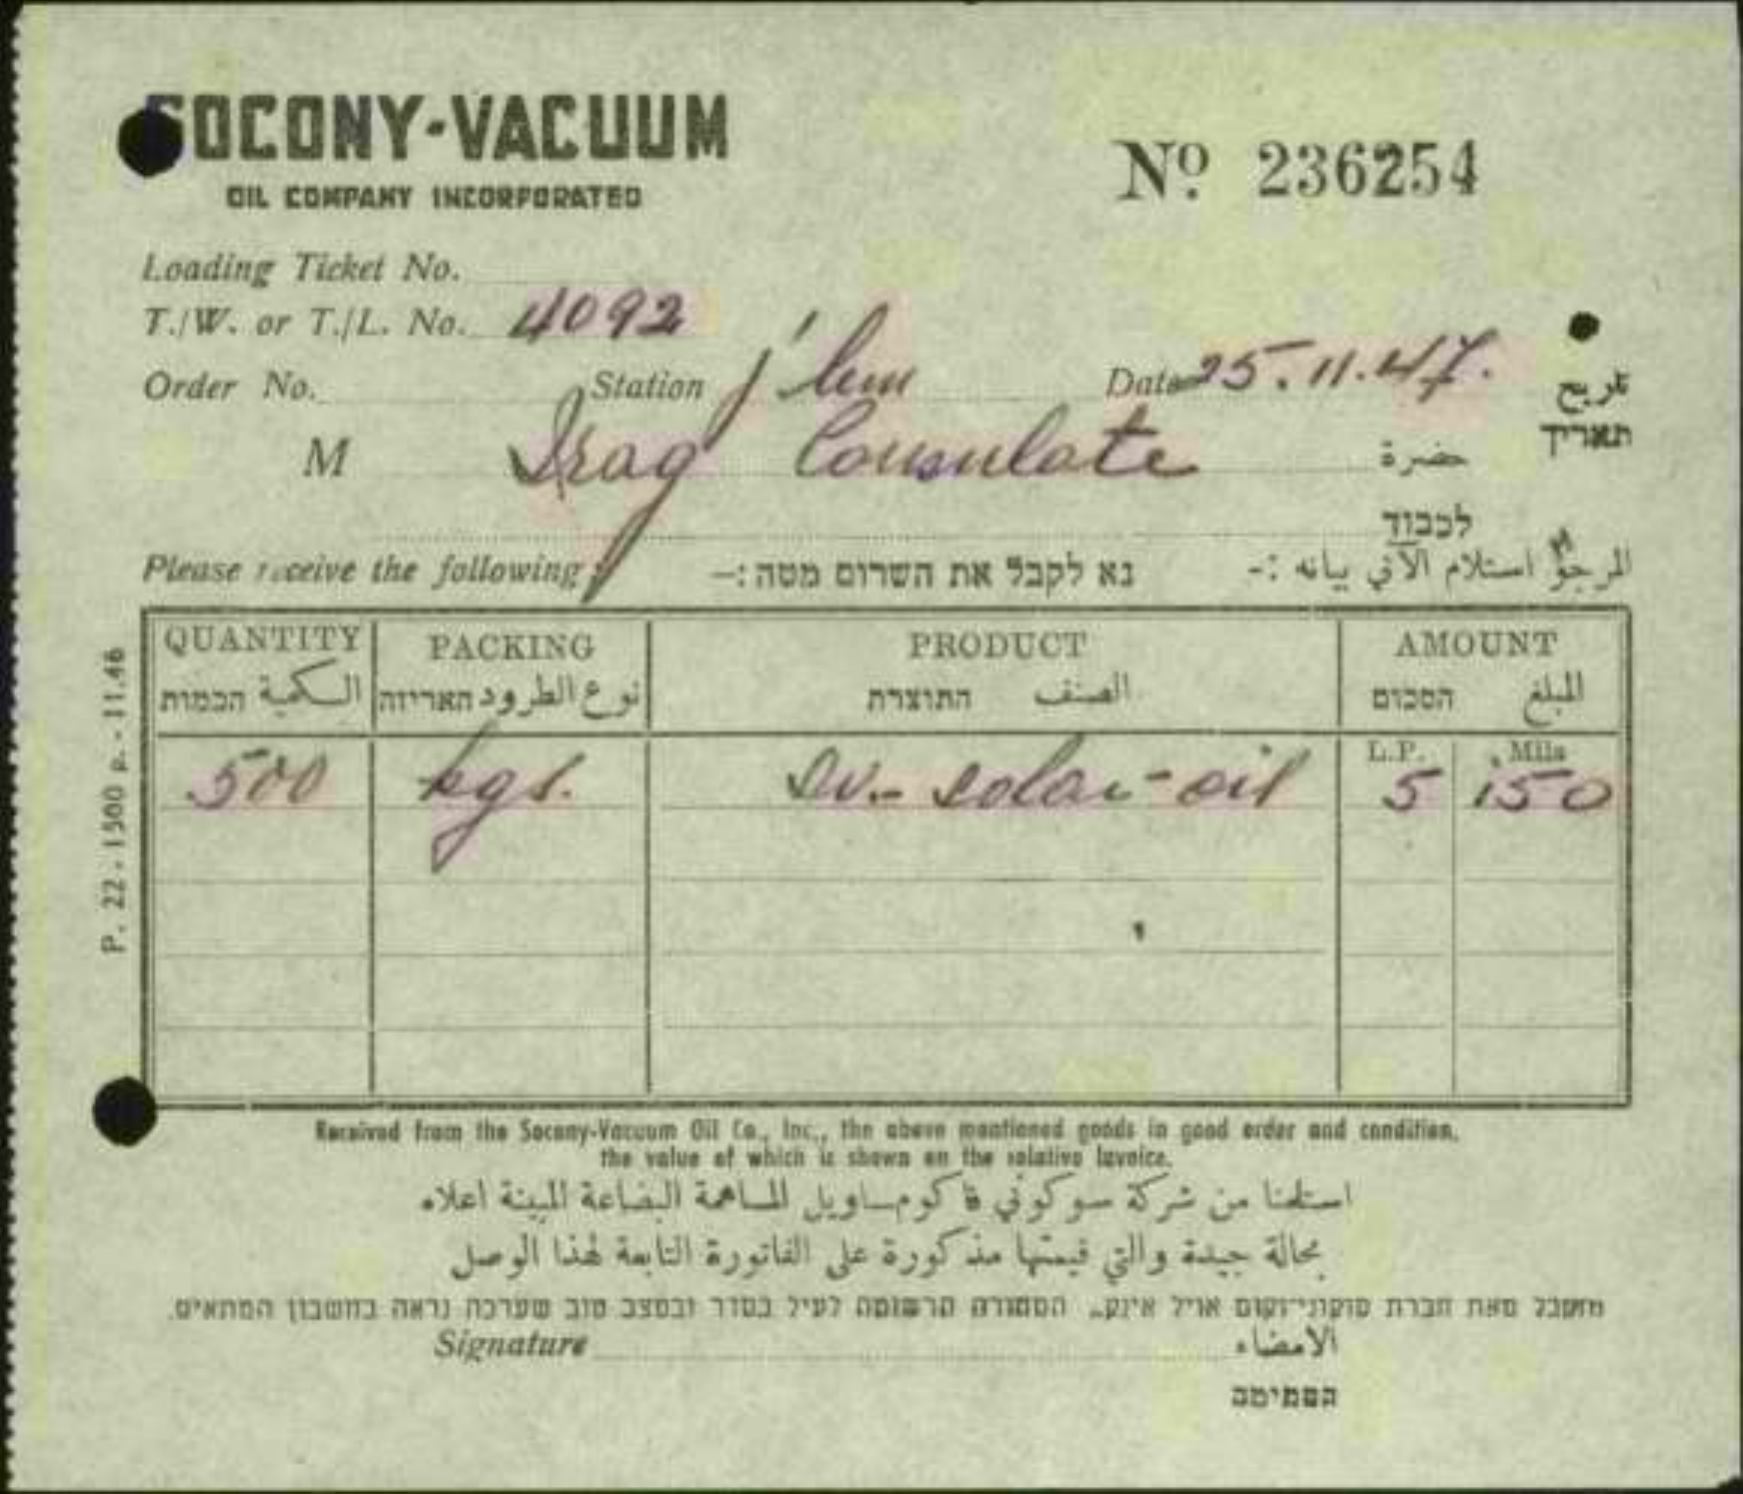 SOCONY-VACUUM
OIL COMPANY INCORPORATED
Nº 236254
Loading Ticket No.
T./W. or T./L. No. 4092
Order No. Station j'lem Date 25.11.47. تاريخ
תאריך
M Iraq Consulate حضرة
לכבוד
Please receive the following נא לקבל את הרשום מטה :– المرجو استلام الآتي بيانه :-
QUANTITY PACKING PRODUCT AMOUNT
הכמות الكمية האריזה نوع الطرود התוצרת الصنف הסכום المبلغ
L.P. Mils
500 kgs. solar-oil 5 150
P. 22 - 1500 p. - 11.46
Received from the Socony-Vacuum Oil Co., Inc., the above mentioned goods in good order and condition,
the value of which is shown on the relative invoice.
استلمنا من شركة سوكوني ڤاكوم اويل المساهمة البضاعة المبينة اعلاه
بحالة جيدة والتي قيمتها مذكورة على الفاتورة التابعة لهذا الوصل
נתקבל מאת חברת סוקוני-וקום אויל אינק., הסחורה הרשומה לעיל בסדר ובמצב טוב שערכה נראה בחשבון המתאים.
Signature الامضاء
החתימה